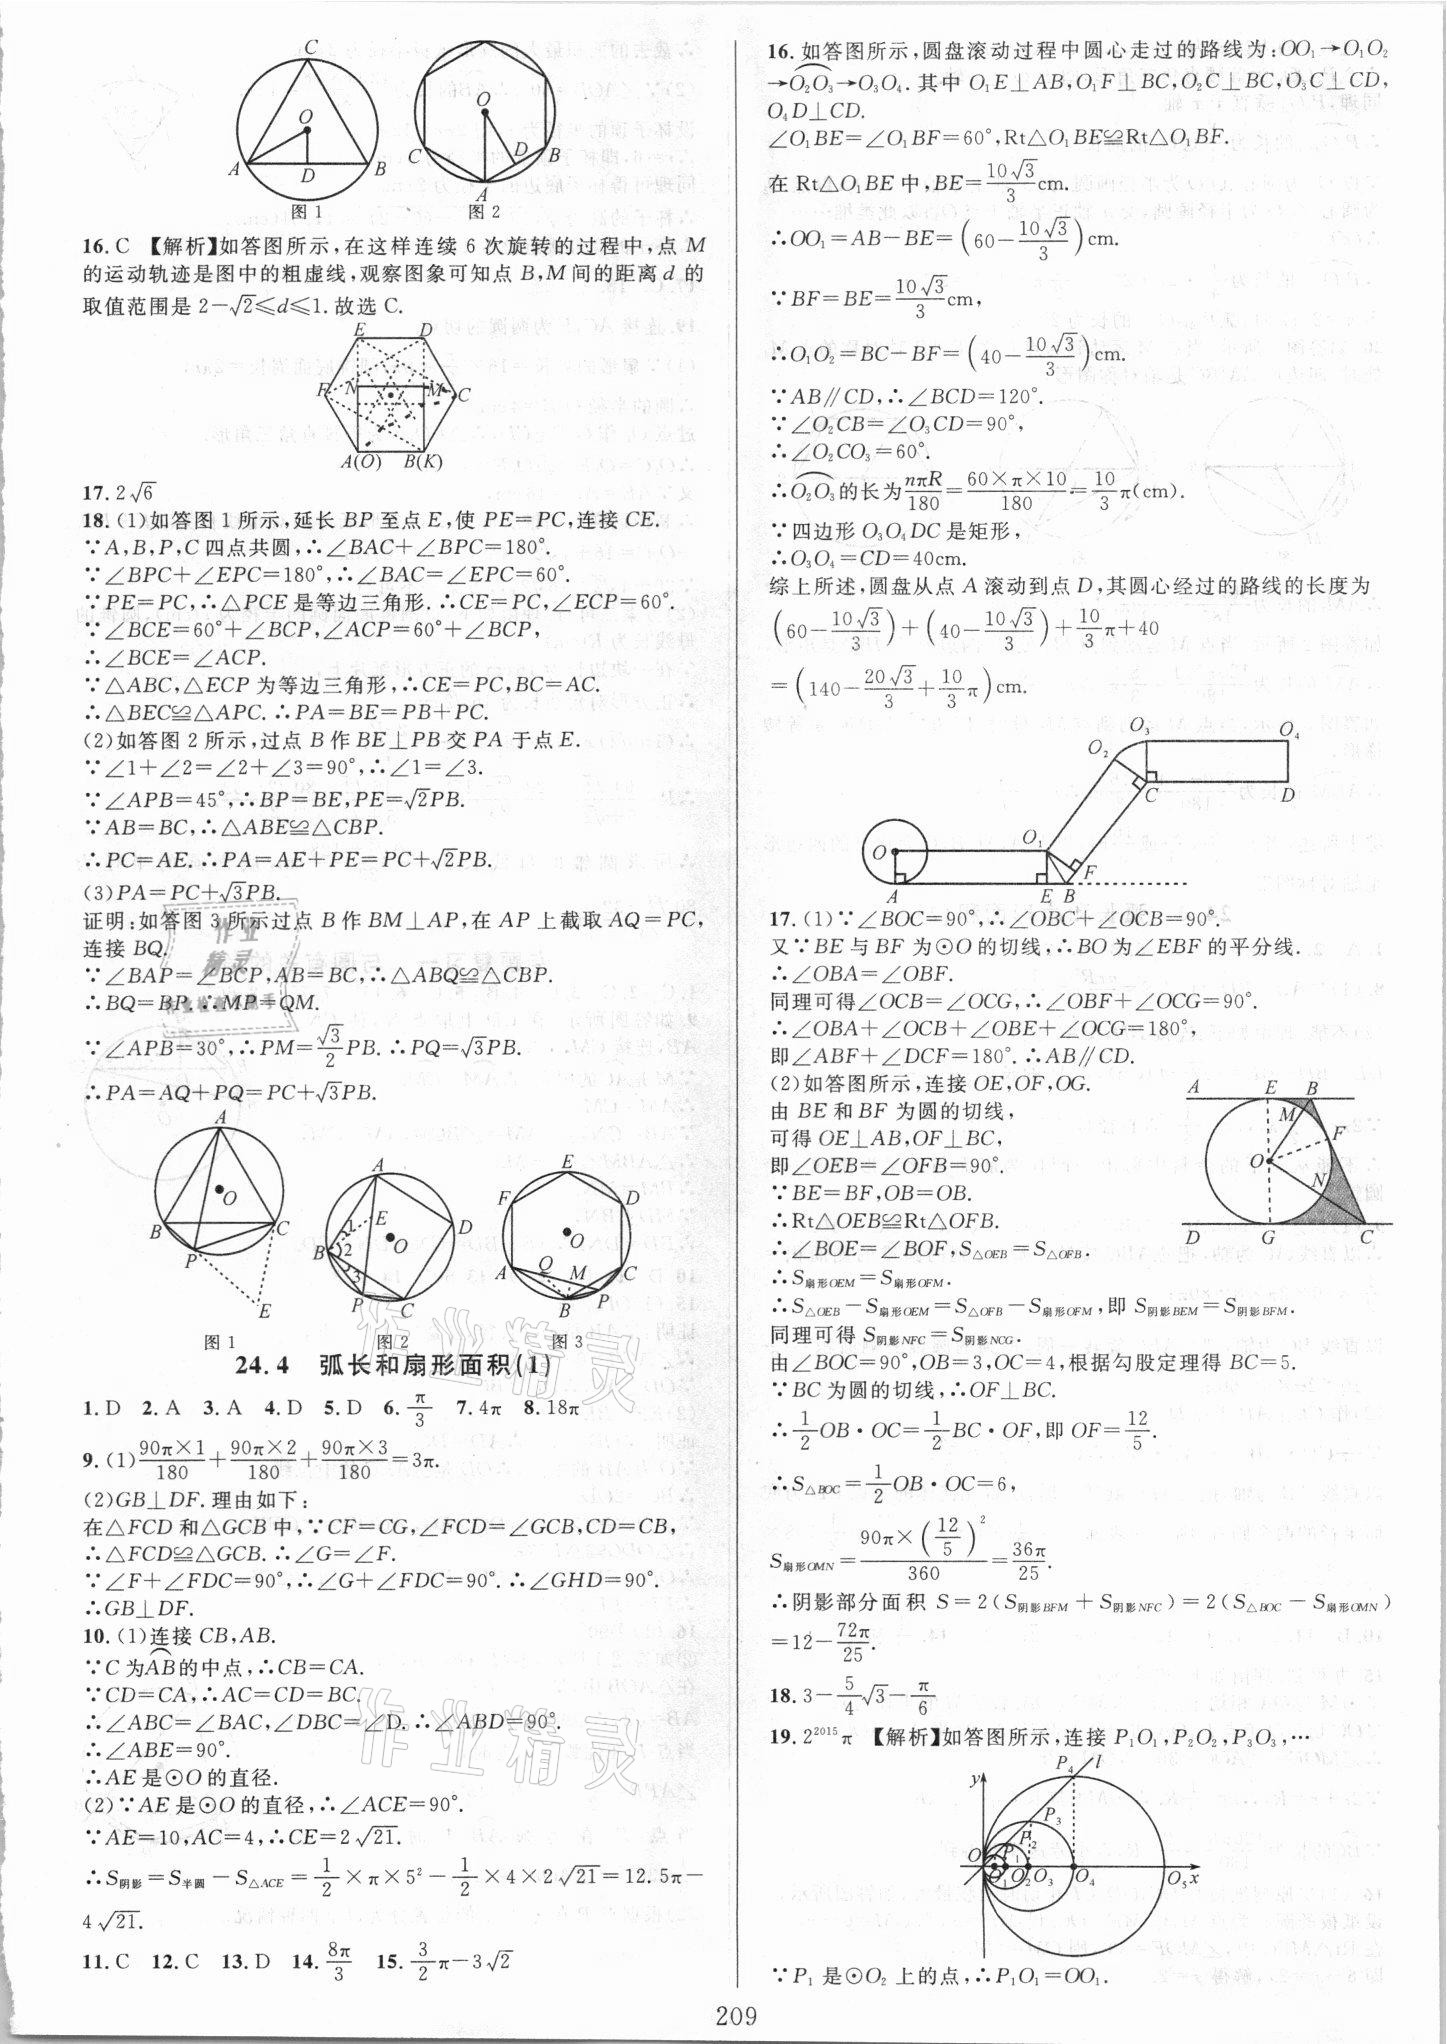 C
O
A
D
B
图1
O
C
D
B
A
图2
16. C 【解析】如答图所示,在这样连续 6 次旋转的过程中,点 M
的运动轨迹是图中的粗虚线,观察图象可知点 B,M 间的距离 d 的
取值范围是 2-√2≤d≤1. 故选 C.
E D
F N M C
A(O) B(K)
17. 2√6
18. (1)如答图 1 所示,延长 BP 至点 E,使 PE=PC,连接 CE.
∵A,B,P,C 四点共圆,∴∠BAC+∠BPC=180°.
∵∠BPC+∠EPC=180°,∴∠BAC=∠EPC=60°.
∵PE=PC,∴△PCE 是等边三角形.∴CE=PC,∠ECP=60°.
∵∠BCE=60°+∠BCP,∠ACP=60°+∠BCP,
∴∠BCE=∠ACP.
∵△ABC,△ECP 为等边三角形,∴CE=PC,BC=AC.
∴△BEC≌△APC.∴PA=BE=PB+PC.
(2)如答图 2 所示,过点 B 作 BE⊥PB 交 PA 于点 E.
∵∠1+∠2=∠2+∠3=90°,∴∠1=∠3.
∵∠APB=45°,∴BP=BE,PE=√2PB.
∵AB=BC,∴△ABE≌△CBP.
∴PC=AE.∴PA=AE+PE=PC+√2PB.
(3)PA=PC+√3PB.
证明:如答图 3 所示过点 B 作 BM⊥AP,在 AP 上截取 AQ=PC,
连接 BQ.
∵∠BAP=∠BCP,AB=BC,∴△ABQ≌△CBP.
∴BQ=BP.∴MP=QM.
∵∠APB=30°,∴PM=√3/2 PB.∴PQ=√3PB.
∴PA=AQ+PQ=PC+√3PB.
A
O
B C
P
E
图1
A
E
1
2
3
B O D
P C
图2
E
F D
O
A Q M C
B P
图3
24.4 弧长和扇形面积(1)
1. D 2. A 3. A 4. D 5. D 6. π/3 7. 4π 8. 18π
9. (1) 90π×1/180 + 90π×2/180 + 90π×3/180 =3π.
(2)GB⊥DF.理由如下:
在△FCD 和△GCB 中,∵CF=CG,∠FCD=∠GCB,CD=CB,
∴△FCD≌△GCB.∴∠G=∠F.
∵∠F+∠FDC=90°,∴∠G+∠FDC=90°.∴∠GHD=90°.
∴GB⊥DF.
10. (1)连接 CB,AB.
∵C 为⌒AB的中点,∴CB=CA.
∵CD=CA,∴AC=CD=BC.
∴∠ABC=∠BAC,∠DBC=∠D.∴∠ABD=90°.
∴∠ABE=90°.
∴AE 是⊙O 的直径.
(2)∵AE 是⊙O 的直径,∴∠ACE=90°.
∵AE=10,AC=4,∴CE=2√21.
∴S阴影=S半圆-S△ACE=1/2×π×5²-1/2×4×2√21=12.5π-
4√21.
11. C 12. C 13. D 14. 8π/3 15. 3/2π-3√2
16. 如答图所示,圆盘滚动过程中圆心走过的路线为:OO₁→O₁O₂
→⌒O₂O₃→O₃O₄.其中 O₁E⊥AB,O₁F⊥BC,O₂C⊥BC,O₃C⊥CD,
O₄D⊥CD.
∠O₁BE=∠O₁BF=60°,Rt△O₁BE≌Rt△O₁BF.
在 Rt△O₁BE 中,BE=10√3/3 cm.
∴OO₁=AB-BE=(60-10√3/3)cm.
∵BF=BE=10√3/3 cm,
∴O₁O₂=BC-BF=(40-10√3/3)cm.
∵AB∥CD,∴∠BCD=120°.
∵∠O₂CB=∠O₃CD=90°,
∴∠O₂CO₃=60°.
∴⌒O₂O₃的长为 nπR/180=60×π×10/180=10/3π(cm).
∵四边形 O₃O₄DC 是矩形,
∴O₃O₄=CD=40cm.
综上所述,圆盘从点 A 滚动到点 D,其圆心经过的路线的长度为
(60-10√3/3)+(40-10√3/3)+10/3π+40
=(140-20√3/3+10/3π)cm.
O₃ O₄
O₂
C D
O O₁
F
A E B
17. (1)∵∠BOC=90°,∴∠OBC+∠OCB=90°.
又∵BE 与 BF 为⊙O 的切线,∴BO 为∠EBF 的平分线.
∴∠OBA=∠OBF.
同理可得∠OCB=∠OCG,∴∠OBF+∠OCG=90°.
∴∠OBA+∠OCB+∠OBE+∠OCG=180°,
即∠ABF+∠DCF=180°.∴AB∥CD.
(2)如答图所示,连接 OE,OF,OG.
由 BE 和 BF 为圆的切线,
可得 OE⊥AB,OF⊥BC,
即∠OEB=∠OFB=90°.
∵BE=BF,OB=OB.
∴Rt△OEB≌Rt△OFB.
∴∠BOE=∠BOF,S△OEB=S△OFB.
∴S扇形OEM=S扇形OFM.
∴S△OEB-S扇形OEM=S△OFB-S扇形OFM,即 S阴影BEM=S阴影BFM.
同理可得 S阴影NFC=S阴影NCG.
由∠BOC=90°,OB=3,OC=4,根据勾股定理得 BC=5.
∵BC 为圆的切线,∴OF⊥BC.
∴1/2OB·OC=1/2BC·OF,即 OF=12/5.
∴S△BOC=1/2OB·OC=6,
S扇形OMN=90π×(12/5)²/360=36π/25.
∴阴影部分面积 S=2(S阴影BFM+S阴影NFC)=2(S△BOC-S扇形OMN)
=12-72π/25.
A E B
M
F
O
N
D G C
18. 3-5/4√3-π/6
19. 2²⁰¹⁵π 【解析】如答图所示,连接 P₁O₁,P₂O₂,P₃O₃,…
P₄ l
y
P₃
P₂
P₁
O O₁ O₂ O₃ O₄ O₅ x
∵P₁ 是⊙O₂ 上的点,∴P₁O₁=OO₁.
209
作业精灵
作业精灵
作业
精灵